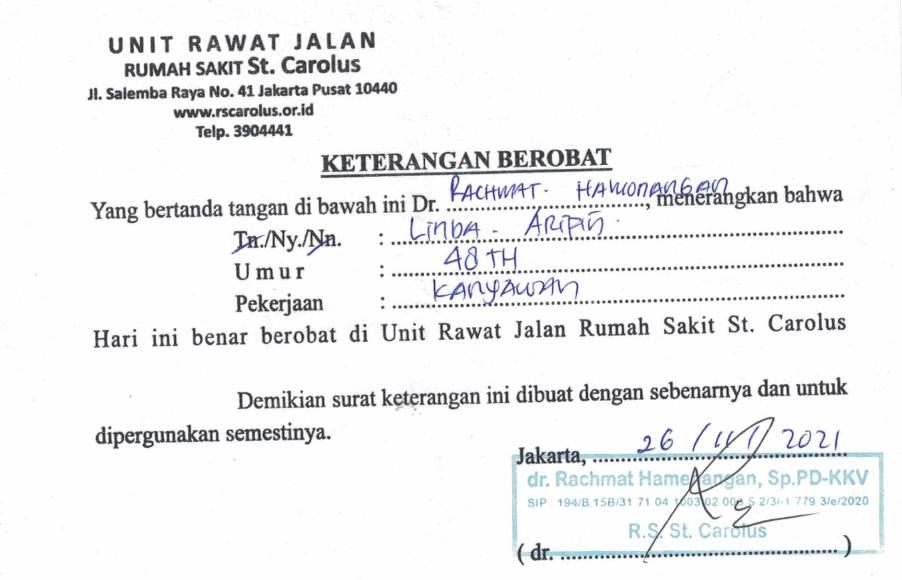 UNIT RAWAT JALAN
RUMAH SAKIT St. Carolus
Jl. Salemba Raya No. 41 Jakarta Pusat 10440
www.rscarolus.or.id
Telp. 3904441
KETERANGAN BEROBAT
Yang bertanda tangan di bawah ini Dr. RACHMAT HAMONANGAN, menerangkan bahwa
Tn./Ny./Nn. : LINDA ARIPIN
Umur : 48 TH
Pekerjaan : KARYAWAN
Hari ini benar berobat di Unit Rawat Jalan Rumah Sakit St. Carolus
Demikian surat keterangan ini dibuat dengan sebenarnya dan untuk
dipergunakan semestinya.
Jakarta, 26 / 2021
dr. Rachmat Hamonangan, Sp.PD-KKV
SIP : 194/B.15B/31 71 04 3/e/2020
R.S. St. Carolus
( dr. )